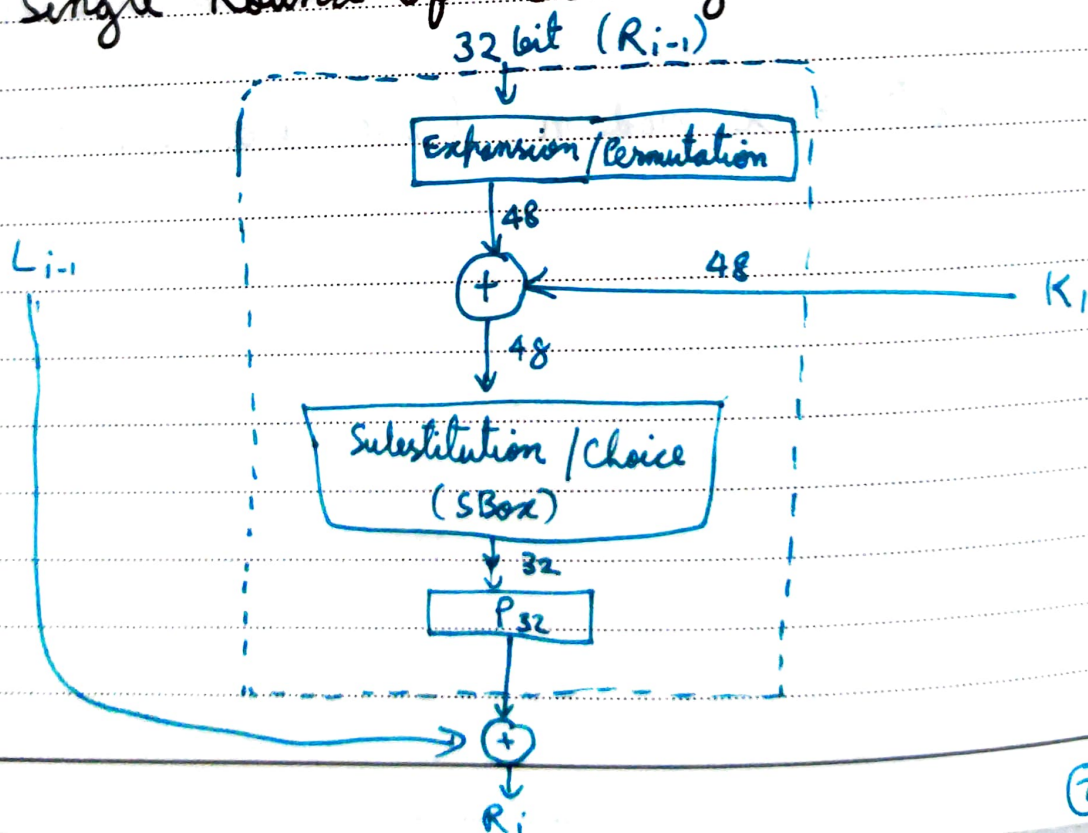 Single Round of
32 bit (Ri-1)
Expansion/Permutation
48
Li-1
+
48
K
48
Substitution / Choice
(SBox)
32
P32
+
Ri